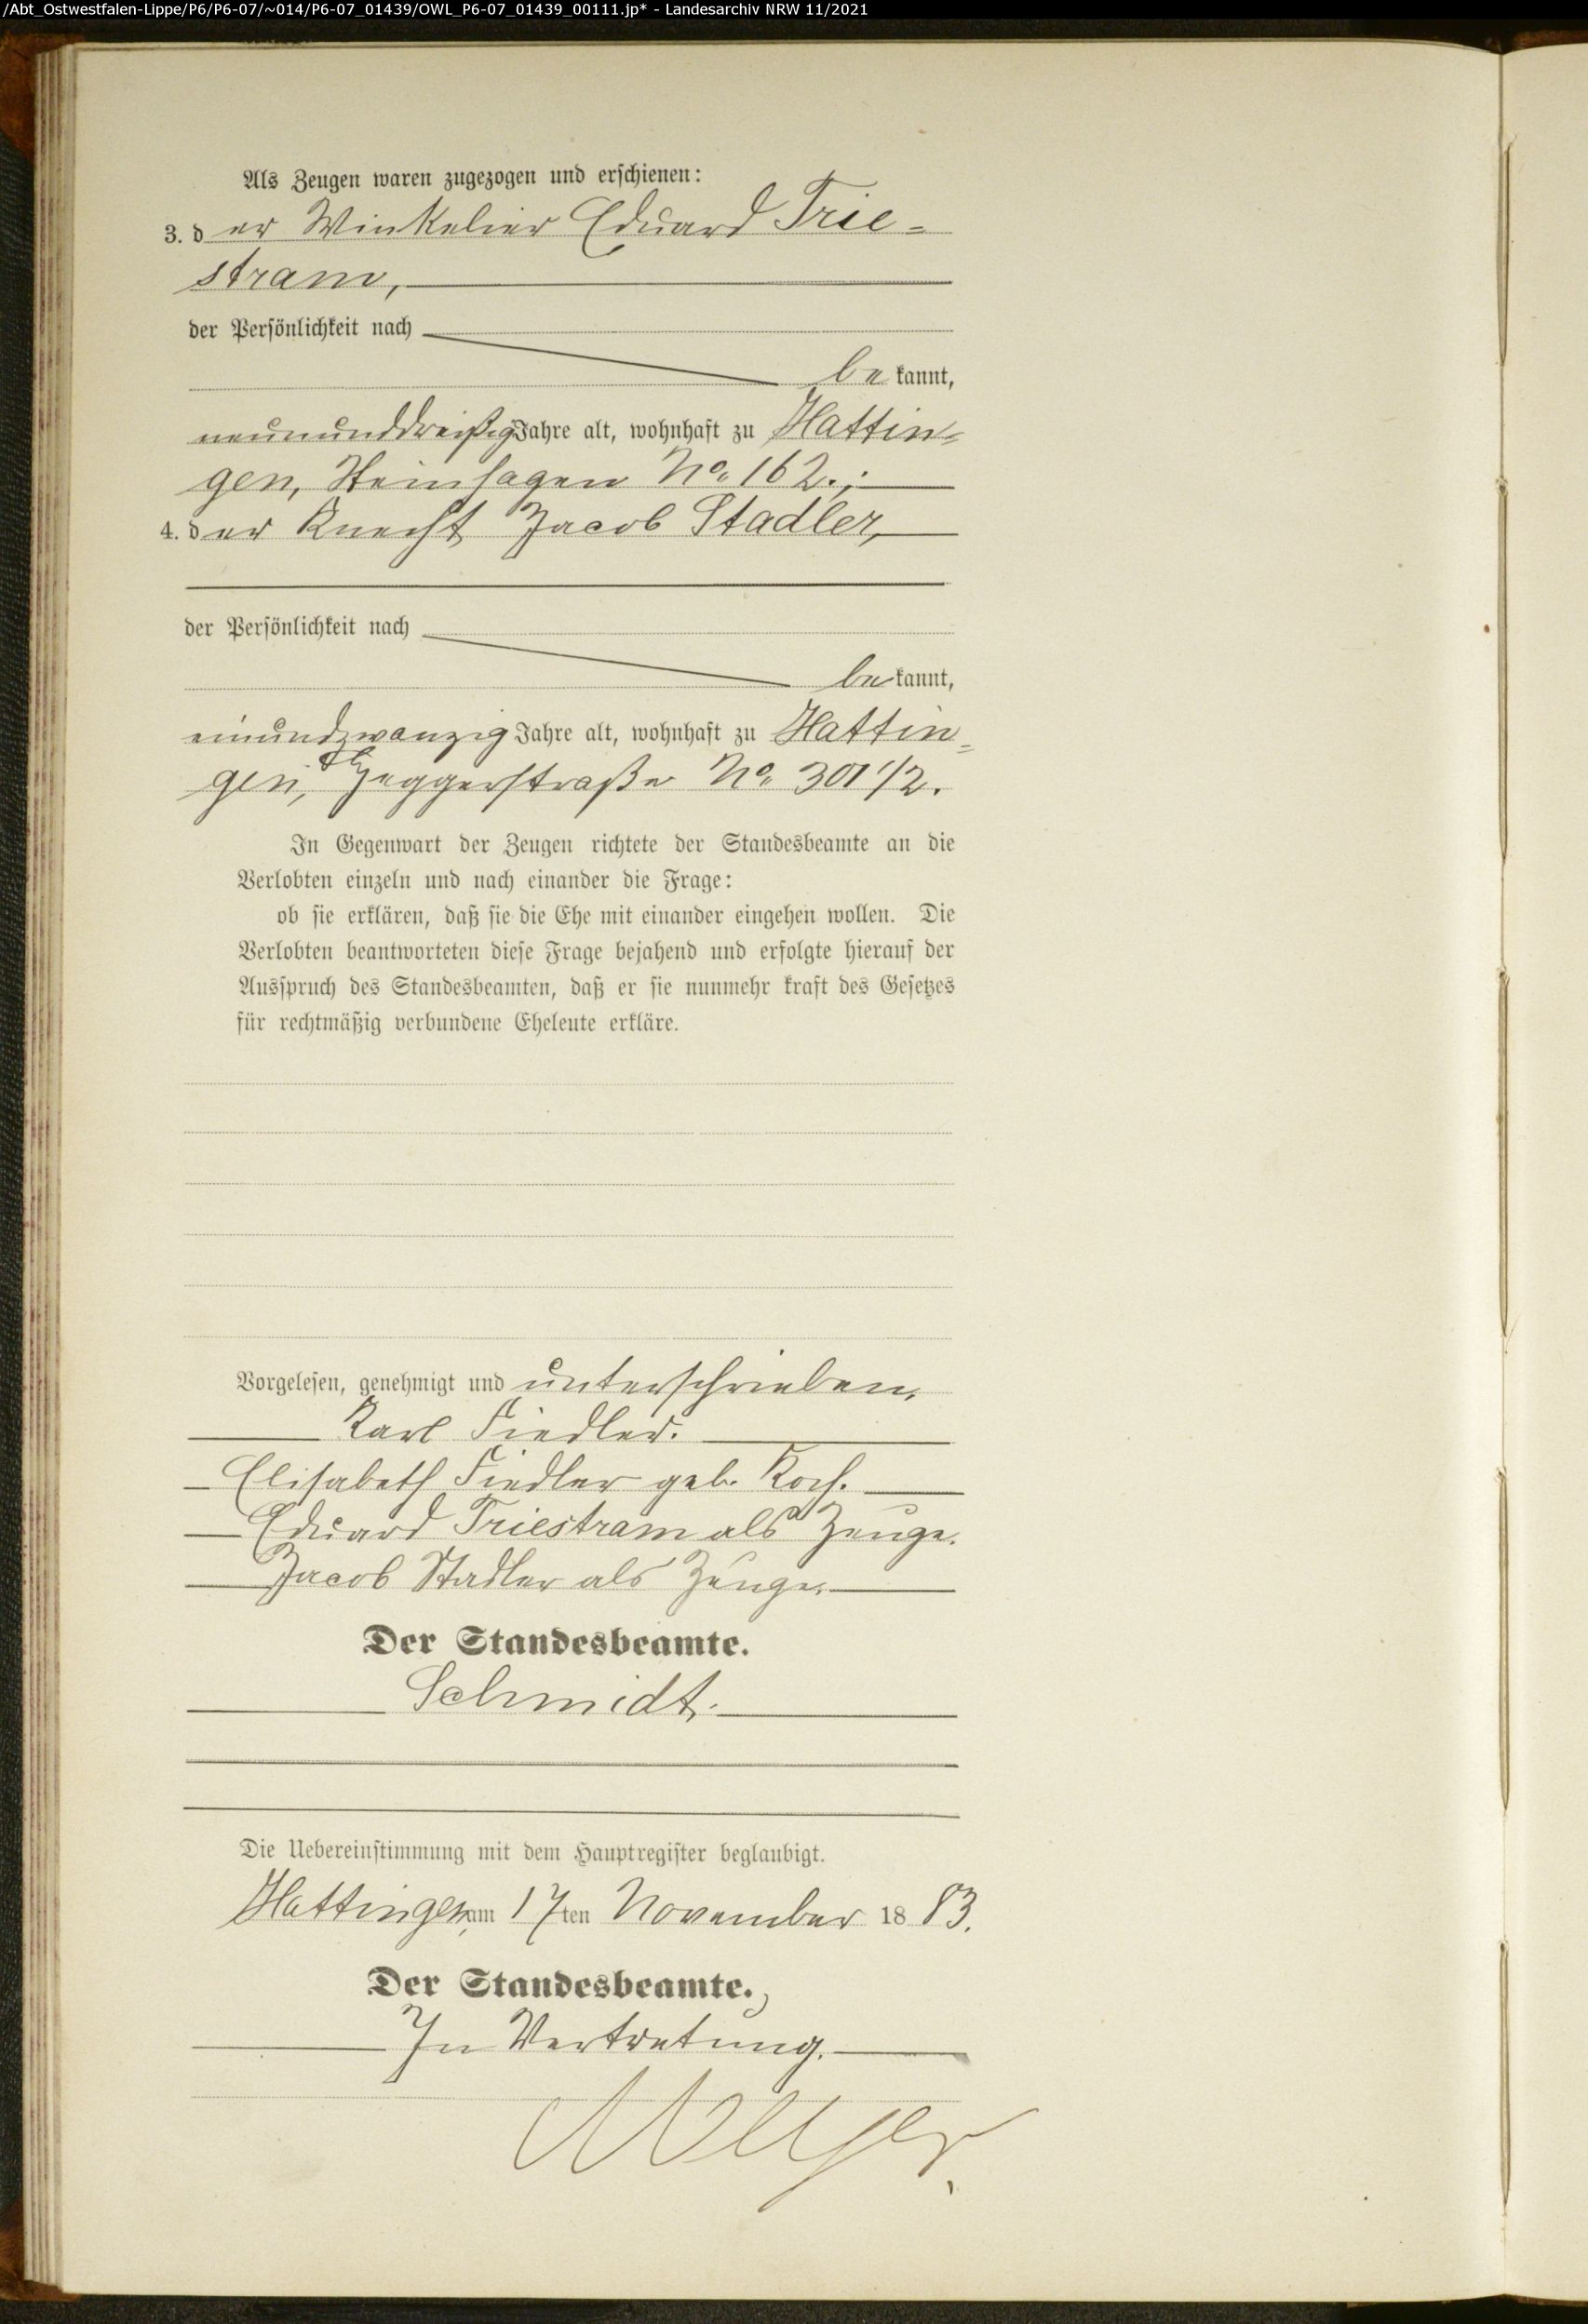 /Abt_Ostwestfalen-Lippe/P6/P6-07/~014/P6-07_01439/OWL_P6-07_01439_00111.jp* - Landesarchiv NRW 11/2021
Als Zeugen waren zugezogen und erschienen:
3. der Winkelier Eduard Trie-
stram,
der Persönlichkeit nach
bekannt,
neununddreißig Jahre alt, wohnhaft zu Hattin-
gen, Steinhagen No. 162.;
4. der Knecht Jacob Stadler,
der Persönlichkeit nach
bekannt,
einundzwanzig Jahre alt, wohnhaft zu Hattin-
gen, Heggerstraße No. 301 1/2.
In Gegenwart der Zeugen richtete der Standesbeamte an die
Verlobten einzeln und nach einander die Frage:
ob sie erklären, daß sie die Ehe mit einander eingehen wollen. Die
Verlobten beantworteten diese Frage bejahend und erfolgte hierauf der
Ausspruch des Standesbeamten, daß er sie nunmehr kraft des Gesetzes
für rechtmäßig verbundene Eheleute erkläre.
Vorgelesen, genehmigt und unterschrieben.
Karl Fiedler.
Elisabeth Fiedler geb. Koch.
Eduard Triestram als Zeuge.
Jacob Stadler als Zeuge.
Der Standesbeamte.
Schmidt.
Die Uebereinstimmung mit dem Hauptregister beglaubigt.
Hattingen, am 17ten November 1883.
Der Standesbeamte.
In Vertretung.